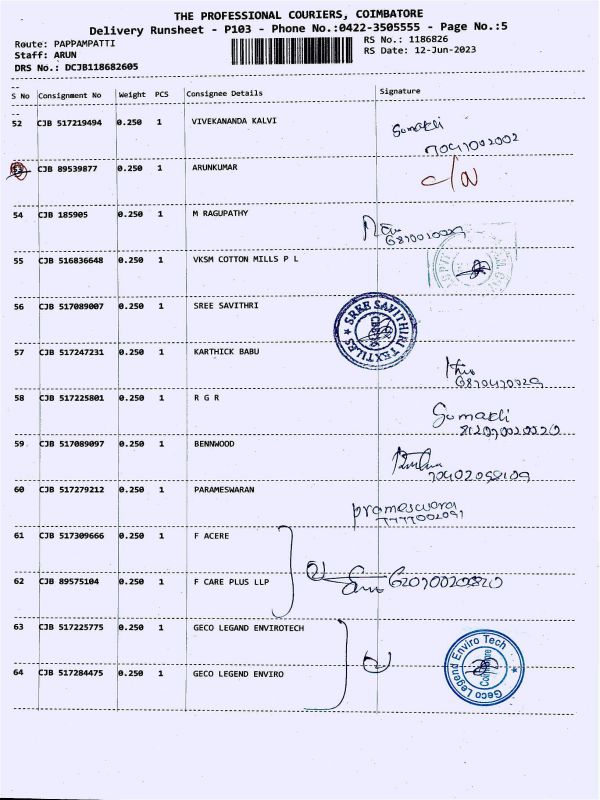 THE PROFESSIONAL COURIERS, COIMBATORE
Delivery Runsheet - P103 - Phone No.:0422-3505555 - Page No.:5
Route: PAPPAMPATTI
RS No.: 1186826
Staff: ARUN
RS Date: 12-Jun-2023
DRS No.: DCJB118682605
S No Consignment No Weight PCS Consignee Details Signature
52 CJB 517219494 0.250 1 VIVEKANANDA KALVI
53 CJB 89539877 0.250 1 ARUNKUMAR
54 CJB 185905 0.250 1 M RAGUPATHY
55 CJB 516836648 0.250 1 VKSM COTTON MILLS P L
56 CJB 517089007 0.250 1 SREE SAVITHRI
SREE SAVITHIRI TEXTILES
57 CJB 517247231 0.250 1 KARTHICK BABU
58 CJB 517225801 0.250 1 R G R
59 CJB 517089097 0.250 1 BENNWOOD
60 CJB 517279212 0.250 1 PARAMESWARAN
61 CJB 517309666 0.250 1 F ACERE
62 CJB 89575104 0.250 1 F CARE PLUS LLP
63 CJB 517225775 0.250 1 GECO LEGAND ENVIROTECH
64 CJB 517284475 0.250 1 GECO LEGEND ENVIRO
Geco Legend Enviro Tech
Coimbatore